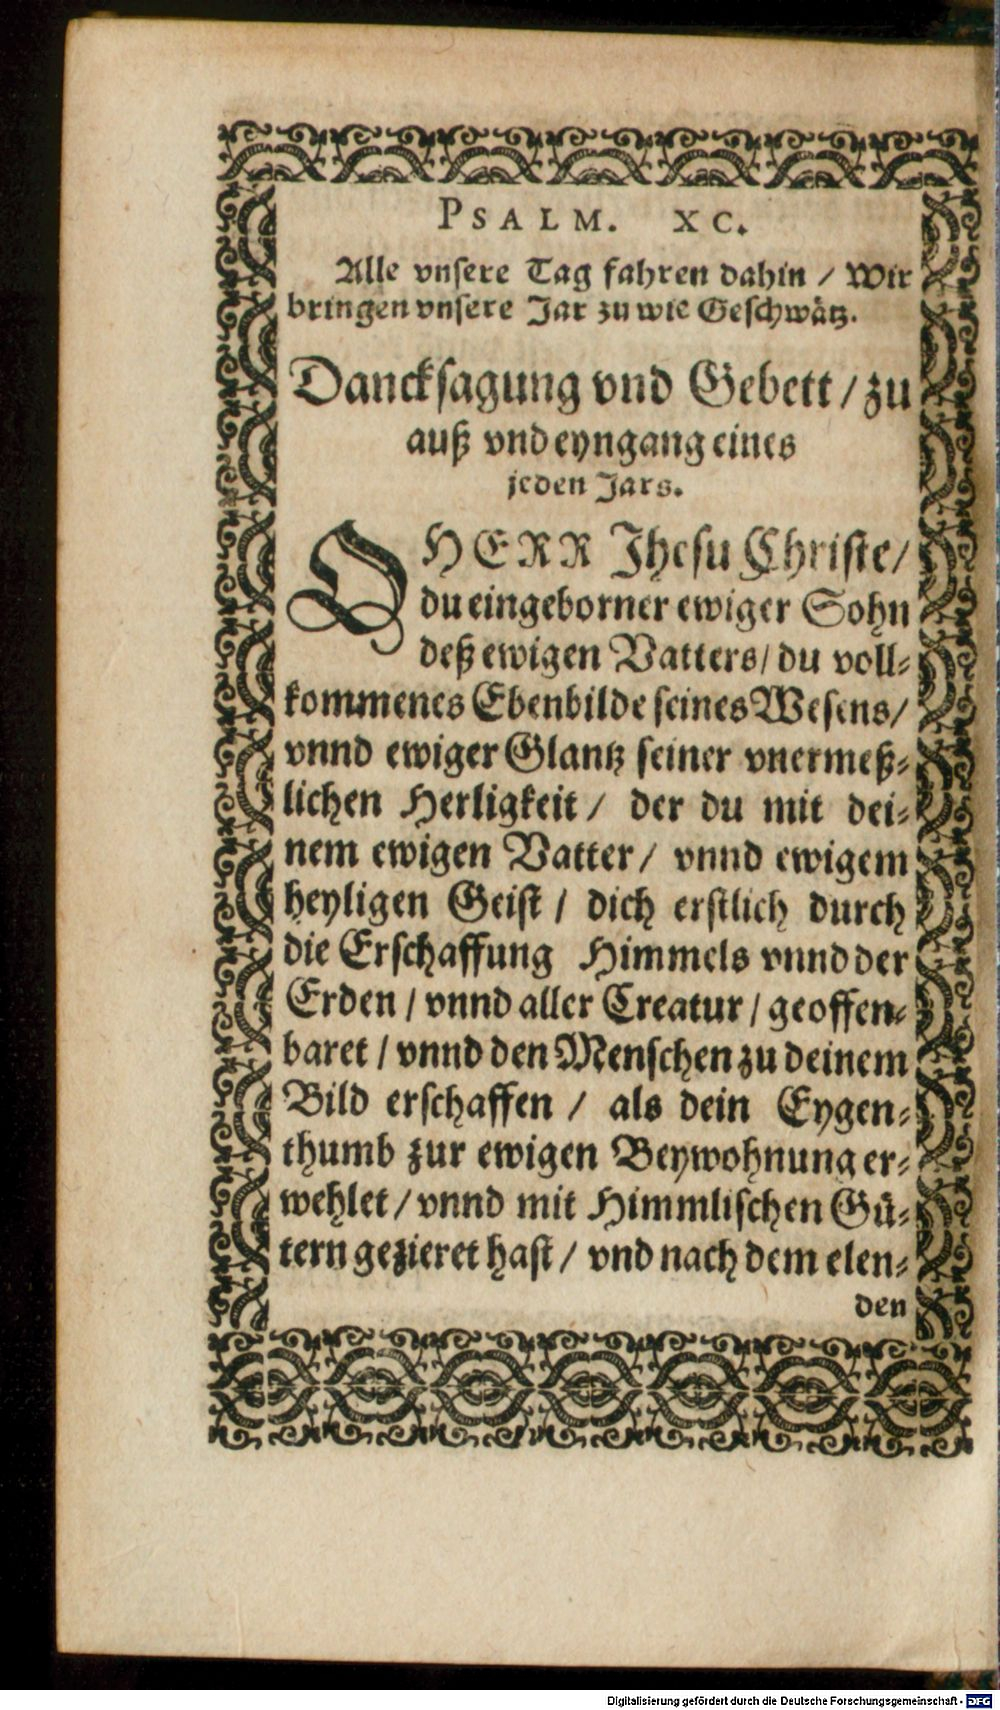 PSALM. XC.
Alle vnsere Tag fahren dahin / Wir
bringen vnsere Jar zu wie Geschwätz.
Dancksagung vnd Gebett / zu
auß vnd eyngang eines
jeden Jars.
O HERR Jhesu Christe /
du eingeborner ewiger Sohn
deß ewigen Vatters / du voll-
kommenes Ebenbilde seines Wesens /
vnnd ewiger Glantz seiner vnermeß-
lichen Herligkeit / der du mit dei-
nem ewigen Vatter / vnnd ewigem
heyligen Geist / dich erstlich durch
die Erschaffung Himmels vnnd der
Erden / vnnd aller Creatur / geoffen-
baret / vnnd den Menschen zu deinem
Bild erschaffen / als dein Eygen-
thumb zur ewigen Beywohnung er-
wehlet / vnnd mit Himmlischen Gü-
tern gezieret hast / vnd nach dem elen-
den
Digitalisierung gefördert durch die Deutsche Forschungsgemeinschaft - DFG